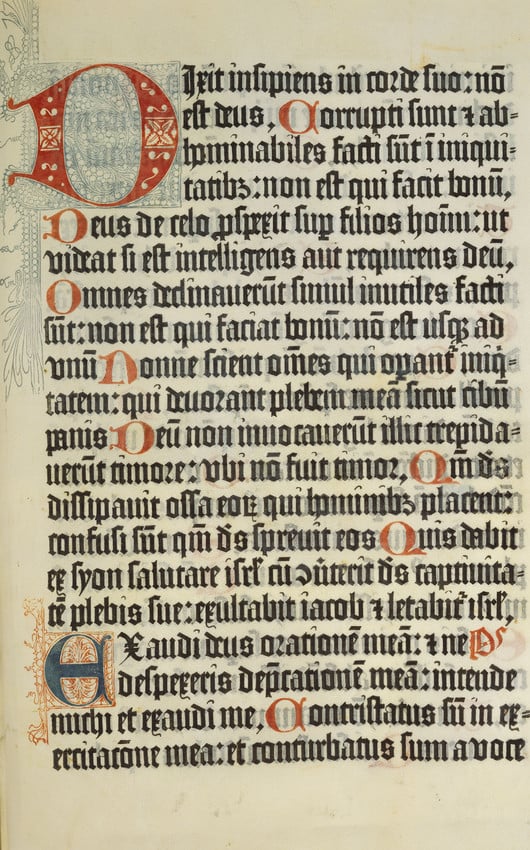 DIxit insipiens in corde suo: nō
est deus, Corrupti sunt ⁊ ab-
hominabiles facti sūt ī iniqui-
tatibꝫ: non est qui facit bonū,
Deus de celo ꝓspexit suꝑ filios hoīm: ut
videat si est intelligens aut requirens deū,
Omnes declinauerūt simul inutiles facti
sūt: non est qui faciat bonū: nō est usqꝫ ad
vnū Nonne scient om̄es qui oꝑant᷑ iniq-
tatem: qui deuorant plebem meā sicut cibū
panis Deū non inuocauerūt illic trepida-
uerūt timore: vbi nō fuit timor, Qm̄ ds̄
dissipauit ossa eoꝝ qui hominibꝫ placent:
confusi sūt qm̄ ds̄ spreuit eos Quis dabit
ex syon salutare isrl̄ cū ꝯūterit ds̄ captiuita-
tē plebis sue: exultabit iacob ⁊ letabit᷑ isrl̄,
EXaudi deus orationē meā: ⁊ ne Ps
despexeris dep̄cationē meā: intende
michi et exaudi me, Contristatus sū in ex-
ercitatōne mea: et conturbatus sum a voce